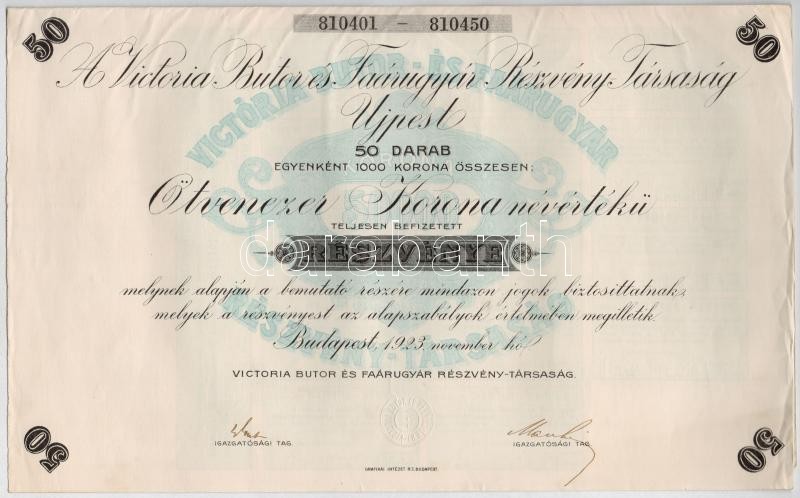 50
810401 – 810450
50
A Victoria Butor és Faárugyár Részvény Társaság
Ujpest
VICTÓRIA BUTOR- ÉS FAÁRUGYÁR
50 DARAB
EGYENKÉNT 1000 KORONA ÖSSZESEN:
Ötvenezer Korona névértékü
TELJESEN BEFIZETETT
RÉSZVÉNYE
darabanth
melynek alapján a bemutató részére mindazon jogok biztosittatnak,
melyek a részvényest az alapszabályok értelmében megilletik.
RÉSZVÉNY-TÁRSASÁG
Budapest, 1923. november hó.
VICTORIA BUTOR ÉS FAÁRUGYÁR RÉSZVÉNY-TÁRSASÁG.
IGAZGATÓSÁGI TAG.
IGAZGATÓSÁGI TAG.
50
50
GRAFIKAI INTÉZET R.T. BUDAPEST.